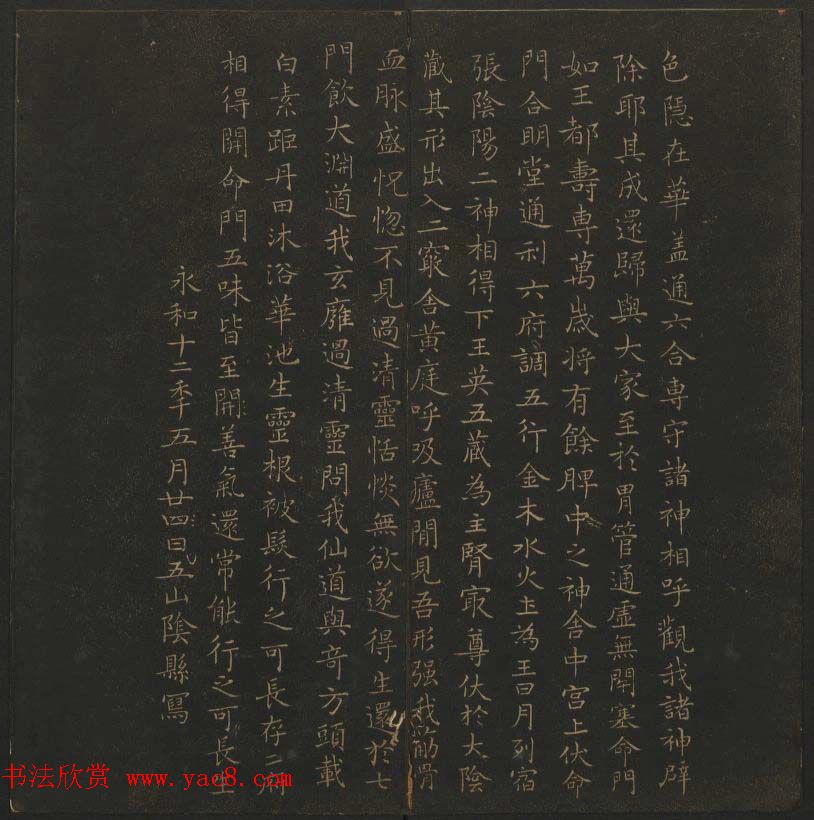 色隱在華盖通六合専守諸神相呼觀我諸神辟
除耶其成還歸與大家至於胃管通虛無閇塞命門
如王都壽専萬歲将有餘脾中之神舍中宮上伏命
門合明堂通利六府調五行金木水火土為王日月列宿
張陰陽二神相得下王英五藏為主腎㝡尊伏於大陰
藏其形出入二竅舍黄庭呼吸廬間見吾形强我筋骨
血脉盛怳惚不見過清靈恬惔無欲遂得生還於七
門飲大淵道我玄廱過清靈問我仙道與奇方頭載
白素距丹田沐浴華池生靈根被髮行之可長存二府
相得開命門五味皆至開善氣還常能行之可長生
永和十二年五月廿四日五山陰縣寫
书法欣赏 www.yac8.com